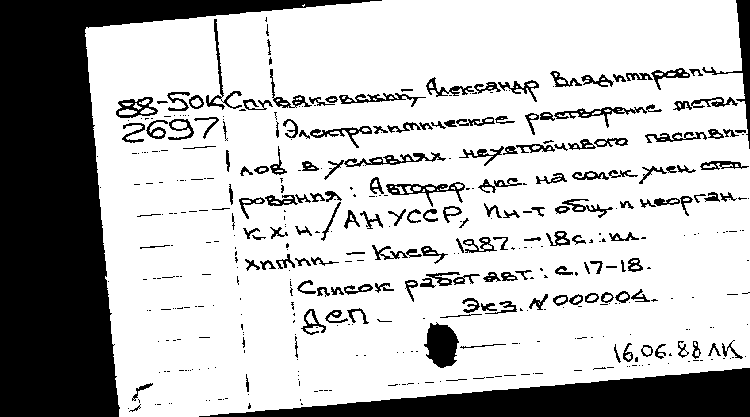 88-50К Спиваковский, Александр Владимирович.
2697 Электрохимическое растворение метал-
лов в условиях неустойчивого пассиви-
рования : Автореф. дис. на соиск. учен. степ.
к. х. н. / АН УССР, Ин-т общ. и неорган.
химии. – Киев, 1987. – 18 с. : ил.
Список работ авт.: с. 17-18.
ДСП Экз. N 000004.
16.06.88 ЛК
5